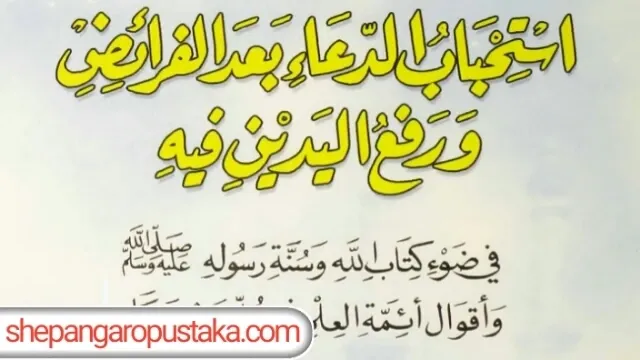 اسْتِحْبَابُ الدُّعَاءِ بَعْدَ الفَرَائِضِ
وَرَفْعُ اليَدَيْنِ فِيهِ
فِي ضَوْءِ كِتَابِ اللهِ وَسُنَّةِ رَسُولِهِ ﷺ
وَأَقْوَالِ أَئِمَّةِ العِلْمِ
shepangaropustaka.com